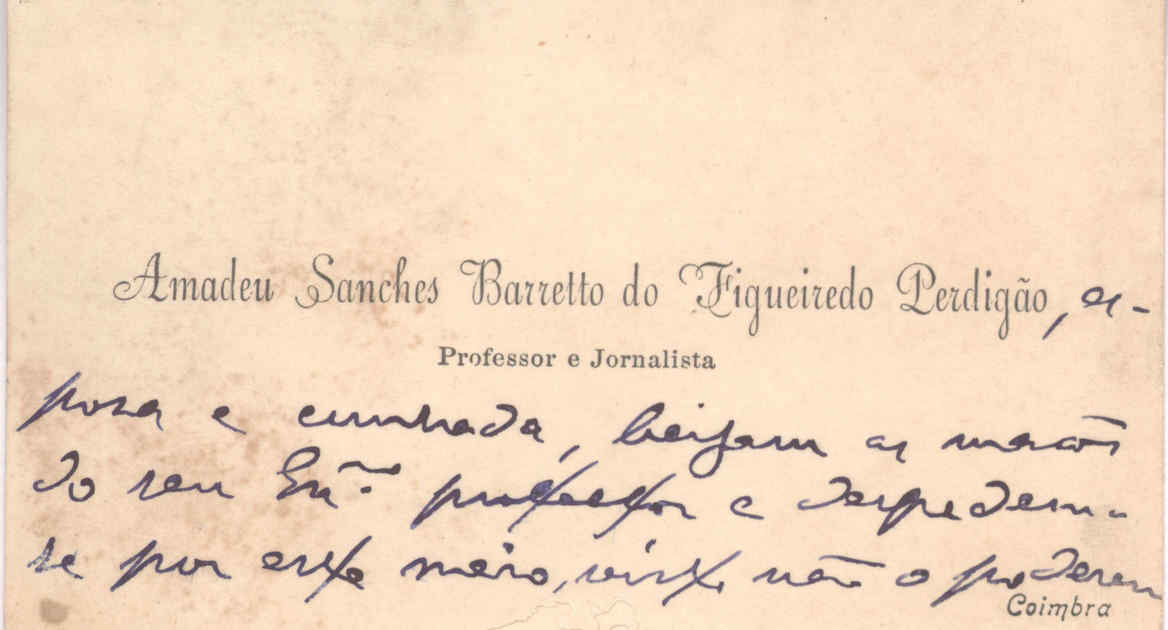 Amadeu Sanches Barretto do Figueiredo Perdigão, es-
Professor e Jornalista
posa e cunhada, beijam as mãos
do seu professor e despedem-
se por este meio, visto não o poderem
Coimbra